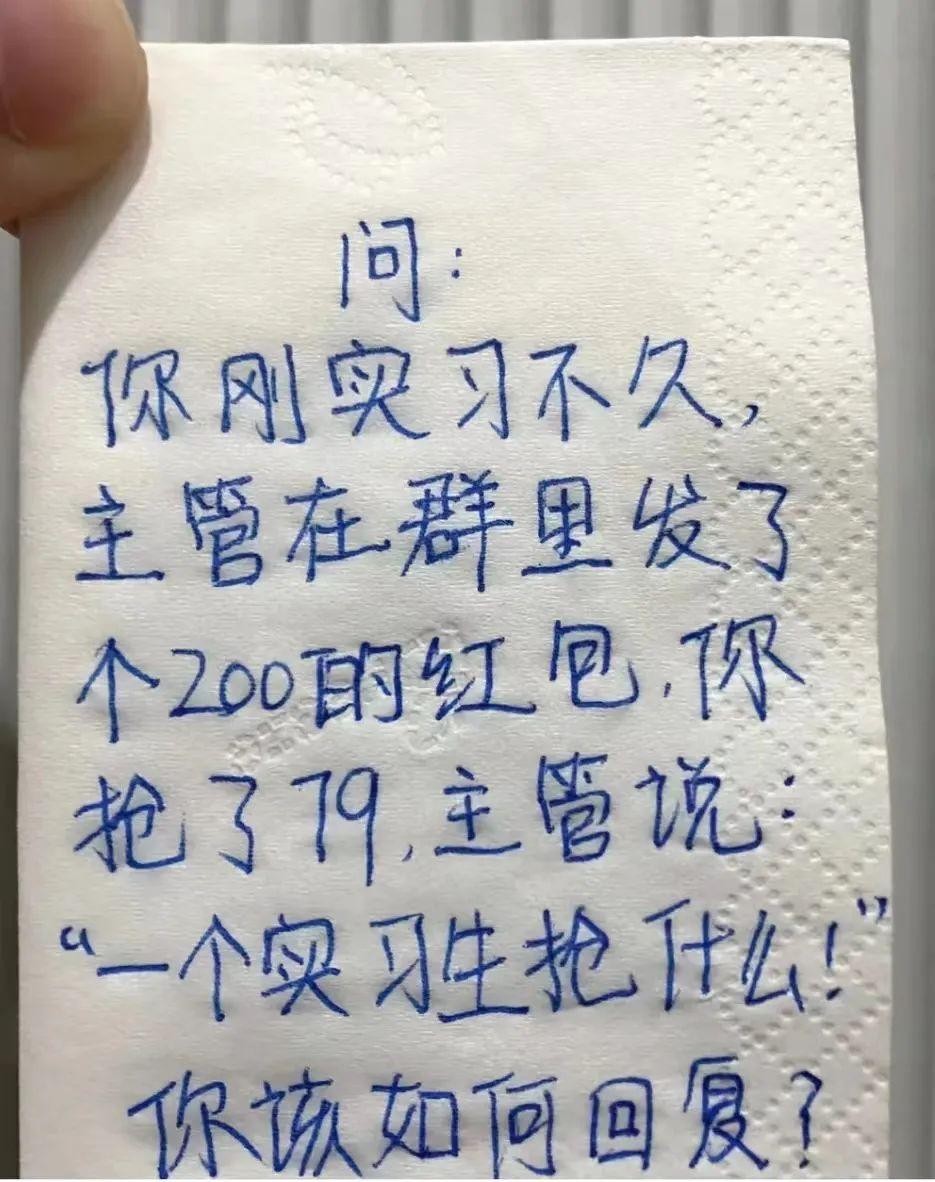 问：
你刚实习不久，
主管在群里发了
个200的红包，你
抢了79，主管说：
“一个实习生抢什么！”
你该如何回复？